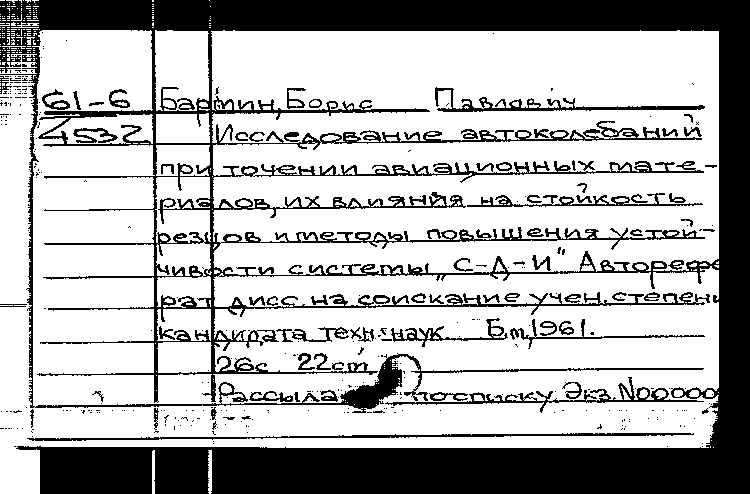 61-6 Бармин, Борис Павлович
4532 Исследование автоколебаний
при точении авиационных мате-
риалов, их влияния на стойкость
резцов и методы повышения устой-
чивости системы „С-Д-И" Авторефе
рат дисс. на соискание учен. степени
кандидата техн. наук Б.м, 1961.
26с 22cm.
Рассыла по списку. Экз. N00000